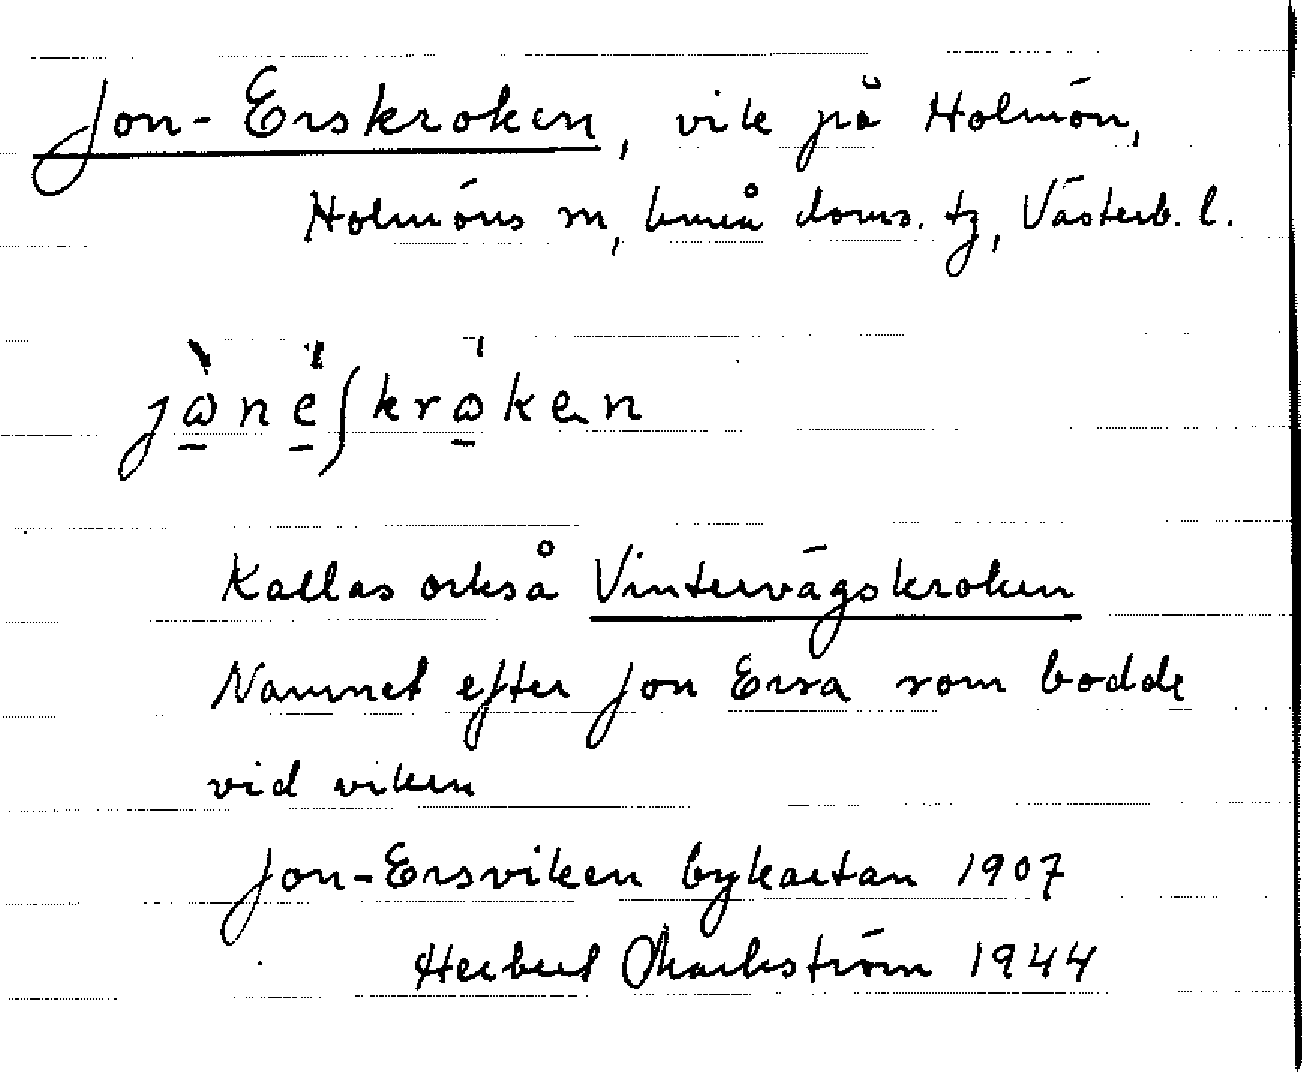 Jon-Erskroken, vik på Holmön,
Holmöns sn, Umeå doms. tg, Västerb. l.
jωneʃkrωken
Kallas också Vintervägskroken
Namnet efter Jon Ersa som bodde
vid viken
Jon-Ersviken bykartan 1907
Herbert Markström 1944